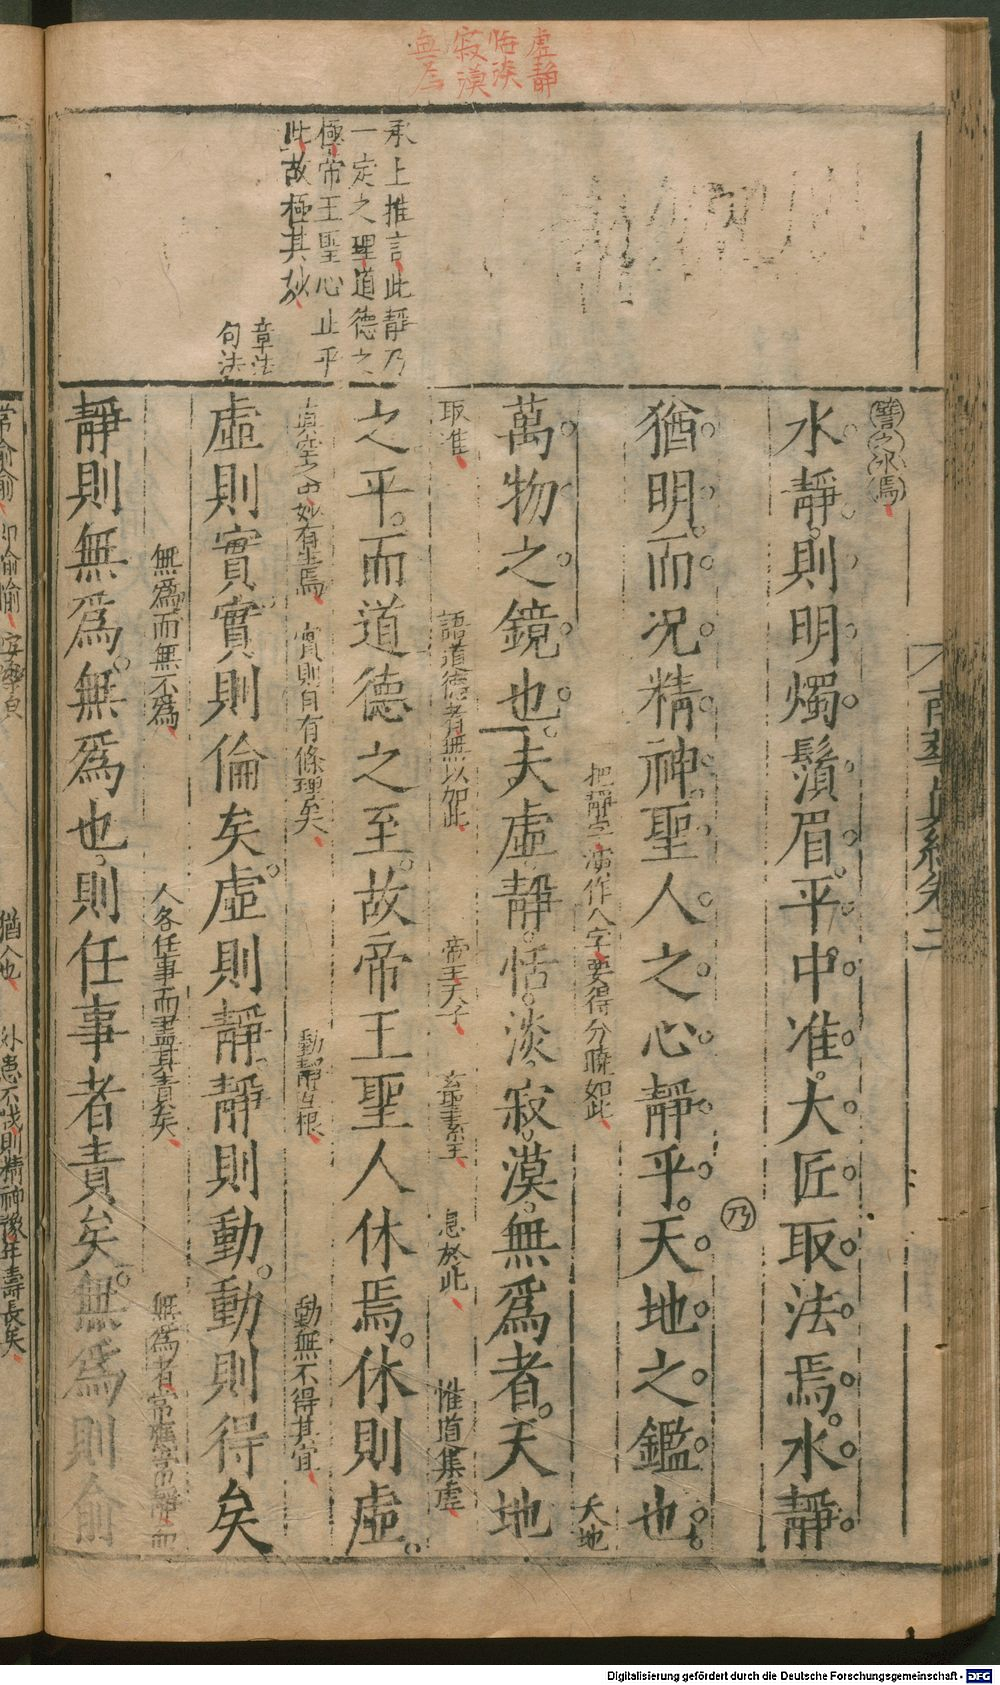 虛靜
恬淡
寂漠
無為
承上推言此靜乃
一定之理道德之
極帝王聖心止乎
此故極其玅
章法
句法
南華真經卷二
譬之水焉
水靜則明燭鬚眉平中准大匠取法焉水靜
乃
猶明而況精神聖人之心靜乎天地之鑑也
把靜字演作八字要得分曉如此
天地
萬物之鏡也夫虛靜恬淡寂漠無爲者天地
取准
語道德者無以加此
帝王天子
玄聖素王
息於此
惟道集虛
之平而道德之至故帝王聖人休焉休則虛
真空之中妙有生焉
實則自有條理矣
動靜互根
動無不得其宜
虛則實實則倫矣虛則靜靜則動動則得矣
無爲而無不爲
人各任事而盡其責矣
無爲者常應常靜而
靜則無爲無爲也則任事者責矣無爲則俞
常俞俞
即愉愉
安學貞
猶人也
外患不戕則精神豫年壽長矣
Digitalisierung gefördert durch die Deutsche Forschungsgemeinschaft - DFG